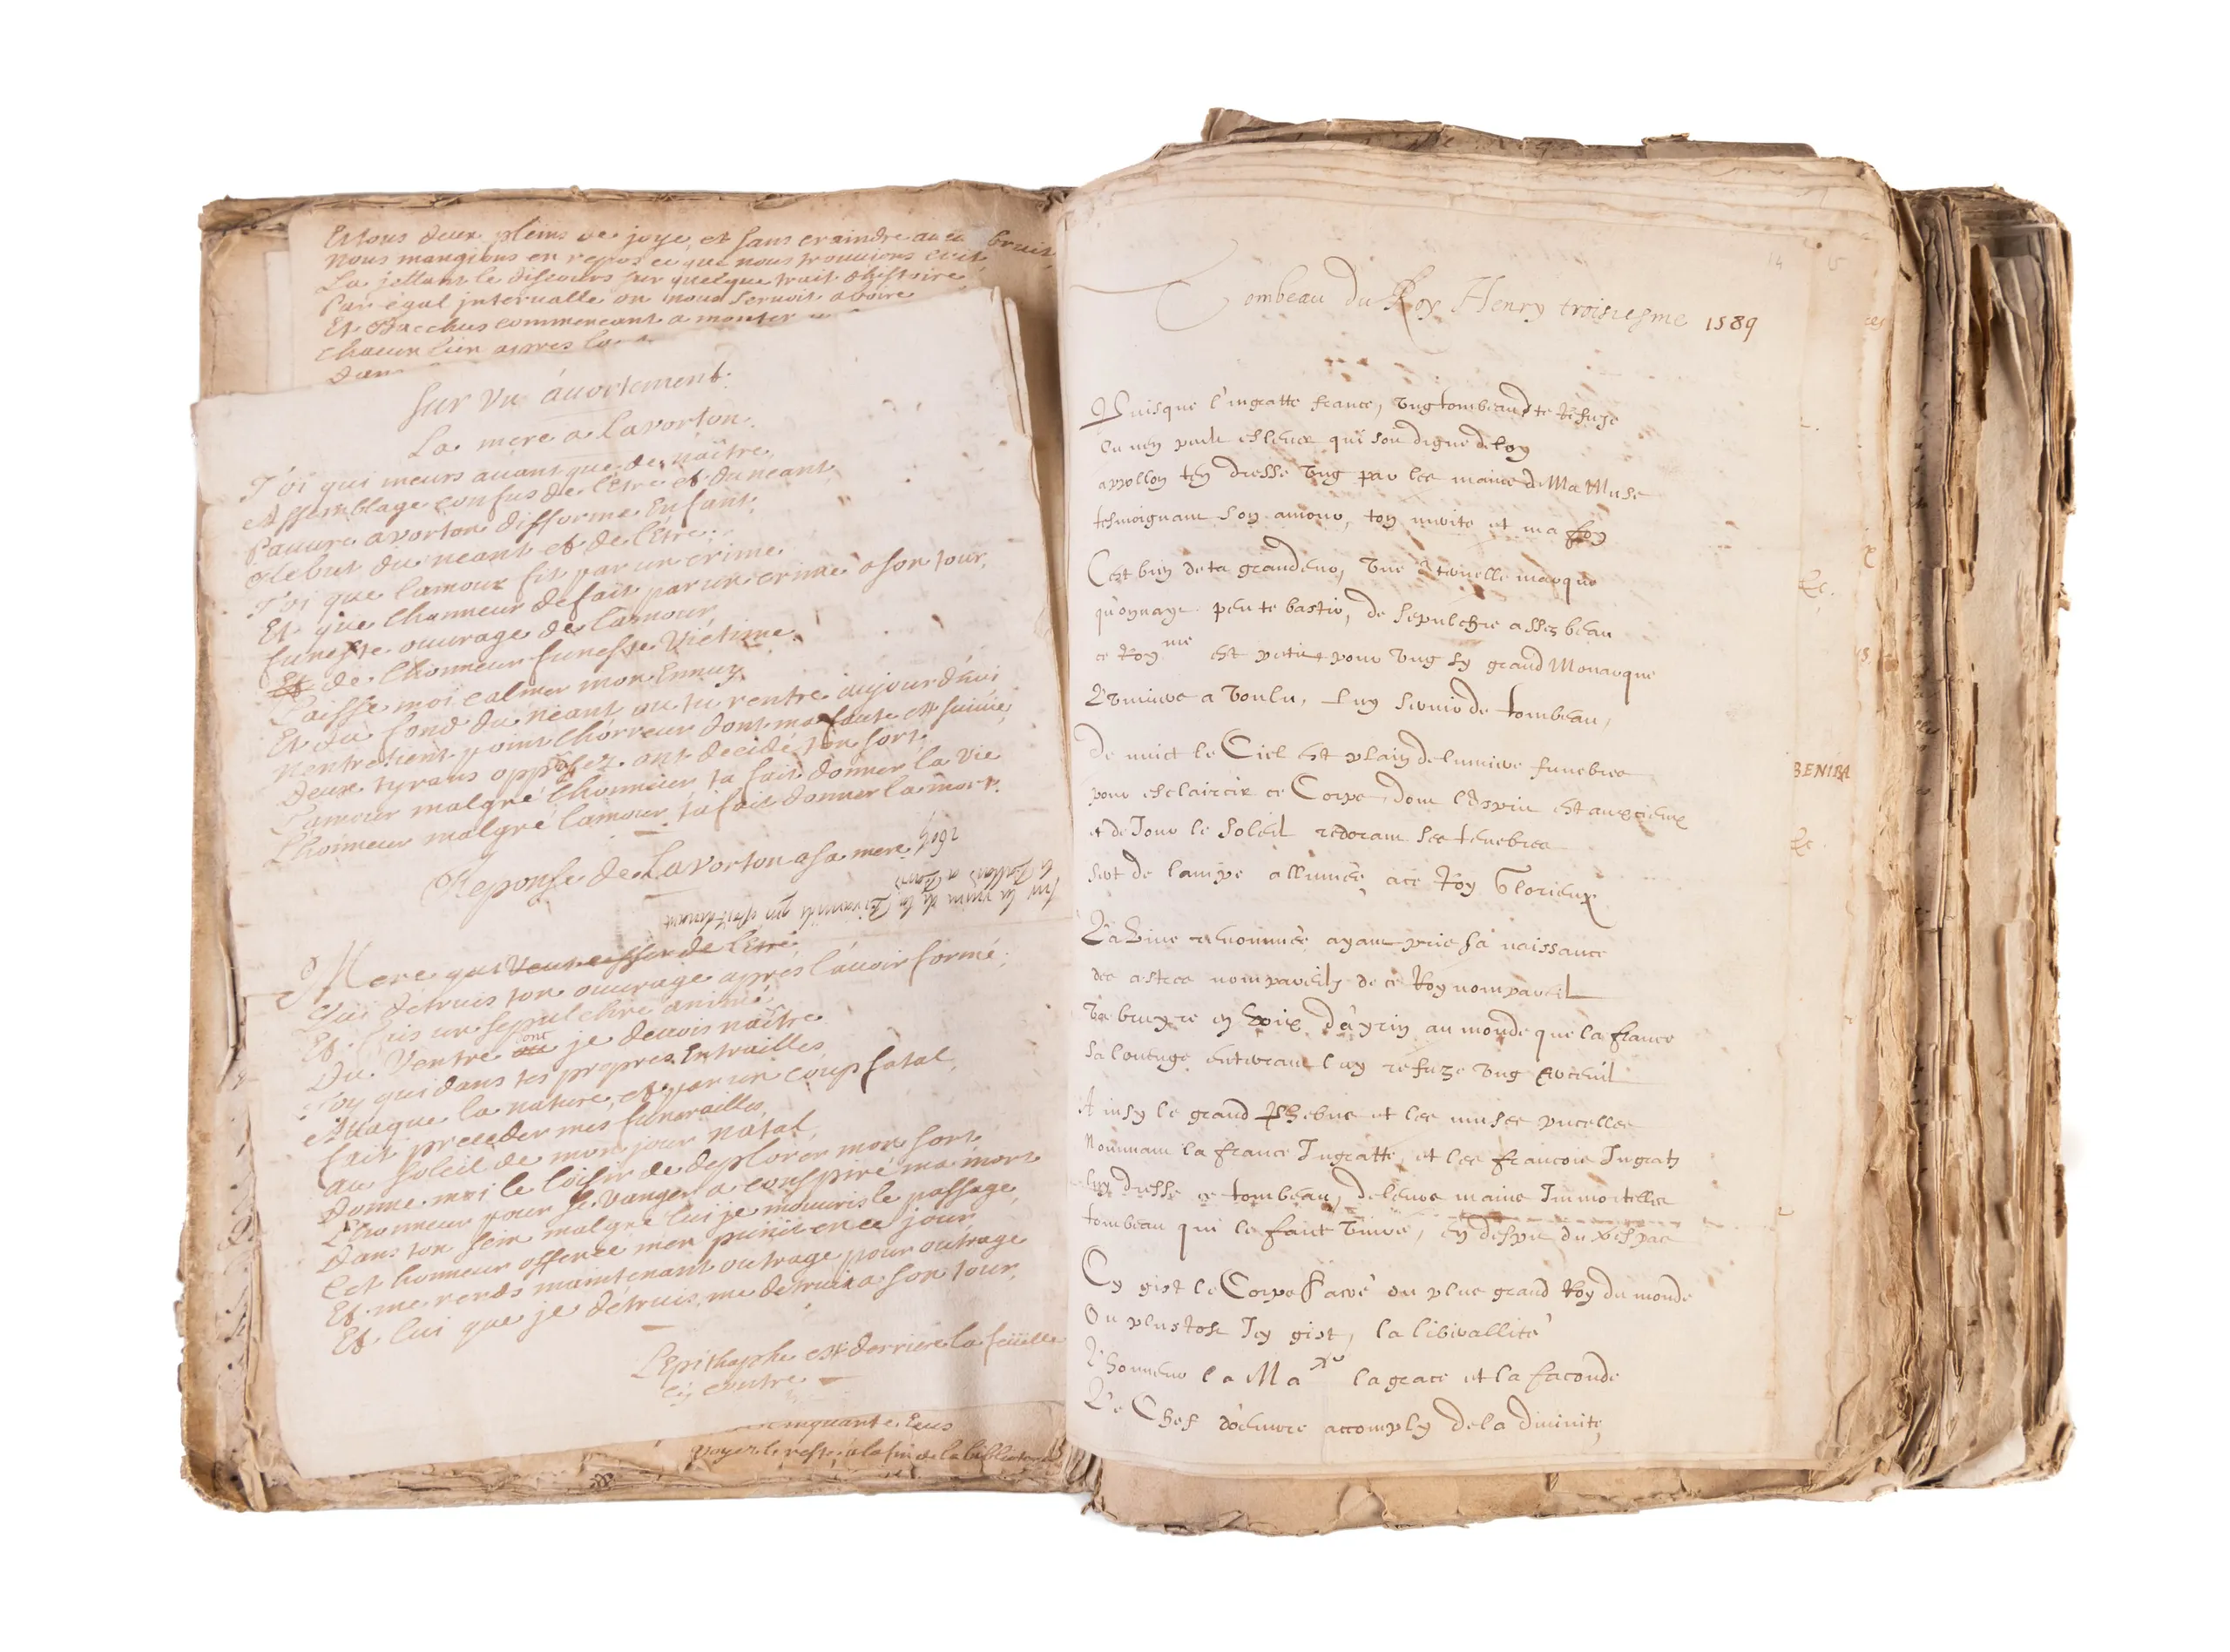 Et tous deux pleins de joye, et sans craindre aucu bruit,
Nous mangions en repos ce que nous trouvions cuit,
La jettant le discours sur quelque trait d'histoire
Par égal jntervalle on nous servoit a boire
Et Bacchus commencant a monter
chacun
dans
Sur vn auortement.
La mere a Lavorton.
Toi qui meurs auant que de naître,
Assemblage confus de l'Etre et du neant
Pauure avorton difforme Enfant,
Rebut du neant et de l'Etre.
Toi que lamour fit par un crime
Et que lhonneur defait par un crime a son tour,
funeste ouurage de lamour,
de lhonneur funeste Victime.
Laisse moi calmer mon Ennuy
Et du fond du neant ou tu rentre aujourd'hui
Nentretient point lhorreur dont ma faute est suiuie,
Deux tyrans opposez ont decidé ton sort,
L'amour malgré lhonneur ta fait donner la vie
L'honneur malgré lamour ta fait donner la mort.
Reponse de Lavorton a sa mere
Mere qui veux effacer de l'Etre,
Qui détruis ton ouurage aprés l'auoir formé,
Et fais un sepulchre animé
Du Ventre dont je deuois naître
Toy qui dans tes propres Entrailles
Attaque la nature, et par un coup fatal,
fait preceder mes funerailles,
Au soleil de mon jour natal,
Donne moi le loisir de deplorer mon sort
L'honneur pour se vanger a conspiré ma mort
Dans ton sein malgré lui je m'ouuris le passage,
Cet honneur offencé men punit en ce jour,
Et me rends maintenant outrage pour outrage
Et lui que je détruis, me detruit a son tour,
L'Epithaphe est derriere la feüille
cy contre
cinquante Ecus
voyez le reste a la fin de la
Tombeau du Roy Henry troisiesme 1589
Puisque l'ingratte france, vng tombeau te refuse
appollon ten dresse vng par les mains de Ma Muse
tesmoignant son amour, ton merite et ma foy
C'est bien de ta grandeur, vne eternelle marque
qu'on naye peu te bastir, de sepulchre assez beau
ce Roy.me est petit pour vng sy grand Monarque
L'vniuers a voulu, luy seruir de tombeau,
De nuict le Ciel est plain de lumiere funebres
pour esclaircir ce Corps, dont l'esprit est aux cieux
et de Jour le soleil redorant ses tenebres
sert de lampe allumée a ce Roy Glorieux
La Viue renommée ayant pris sa naissance
des astres nompareilz de ce Roy nompareil
Va bruyre en voix d'ayrin au monde que la france
sa louenge enterrant luy refuze vng cerceuil
Ainsy le grand Phebus et les muses pucelles
Nommant la france Ingratte, et les francois Ingratz
luy dresse ce tombeau, de leurs mains Immortelles
tombeau qui le faict viure, en despit du trespas
Cy gist le Corps Sacré du plus grand Roy du monde
Ou plustost Icy gist, la liberallité
L'honneur la Ma.té la grace et la faconde
Le Chef d'oeuure accomply de la diuinite,